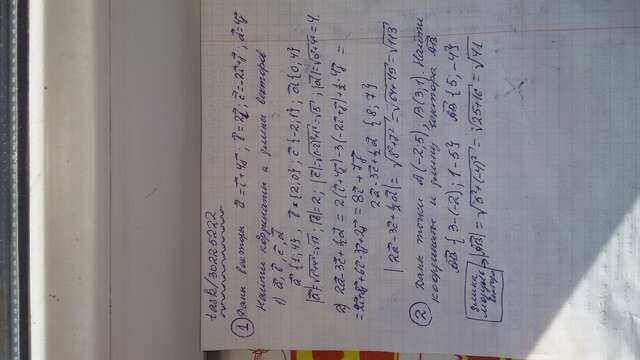 task/30225222
① Даны векторы a⃗ = i⃗+4j⃗ ; b⃗ = 2i⃗ ; c⃗ = -2i⃗+j⃗ ; d⃗ = 4j⃗
Найти координаты и длины векторов
1) a⃗, b⃗, c⃗, d⃗
a⃗ {1;4} , b⃗ {2;0} ; c⃗ {-2;1} ; d⃗ {0;4}
|a⃗| = ; |b⃗| = 2 ; |c⃗| = √(-2)²+1² = √5 ; |d⃗| = √0²+4² = 4.
2) 2a⃗-3c⃗+½d⃗ = 2(i⃗+4j⃗)-3(-2i⃗+j⃗)+½·4j⃗ =
= 2i⃗+8j⃗+6i⃗-3j⃗+2j⃗ = 8i⃗+7j⃗
2a⃗-3c⃗+½d⃗ {8;7}
|2a⃗-3c⃗+½d⃗| = √8²+7² = √64+49 = √113
② Даны точки A(-2;5), B(3;1). Найти
координаты и длину вектора AB
AB {3-(-2); 1-5} AB {5;-4}
длина
модуль
вектора
|AB| = √5²+(-4)² = √25+16 = √41